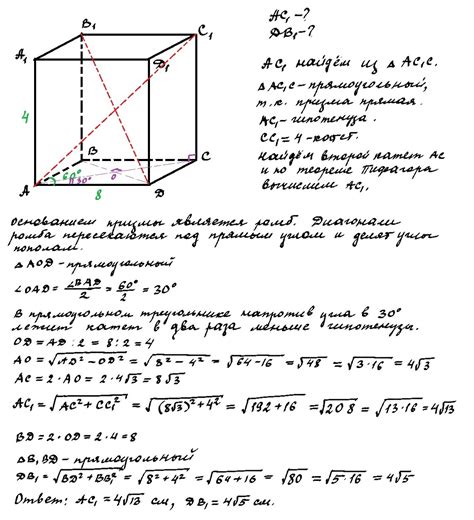 B₁
C₁
A₁
D₁
4
B
C
60°
30°
O
A
8
D
AC₁ - ?
DB₁ - ?
AC₁ найдём из △ AC₁C.
△ AC₁C - прямоугольный,
т.к. призма прямая.
AC₁ - гипотенуза.
CC₁ = 4 - катет.
Найдём второй катет AC
и по теореме Пифагора
вычислим AC₁.
Основанием призмы является ромб. Диагонали
ромба пересекаются под прямым углом и делят углы
пополам.
△ AOD - прямоугольный
∠OAD = ∠BAD/2 = 60°/2 = 30°
В прямоугольном треугольнике напротив угла в 30°
лежит катет в два раза меньше гипотенузы.
OD = AD : 2 = 8 : 2 = 4
AO = √(AD² - OD²) = √(8² - 4²) = √(64 - 16) = √48 = √(3·16) = 4√3
AC = 2·AO = 2·4√3 = 8√3
AC₁ = √(AC² + CC₁²) = √((8√3)² + 4²) = √(192 + 16) = √208 = √(13·16) = 4√13
BD = 2·OD = 2·4 = 8
△B₁BD - прямоугольный
DB₁ = √(BD² + BB₁²) = √(8² + 4²) = √(64 + 16) = √80 = √(5·16) = 4√5
Ответ: AC₁ = 4√13 см, DB₁ = 4√5 см.